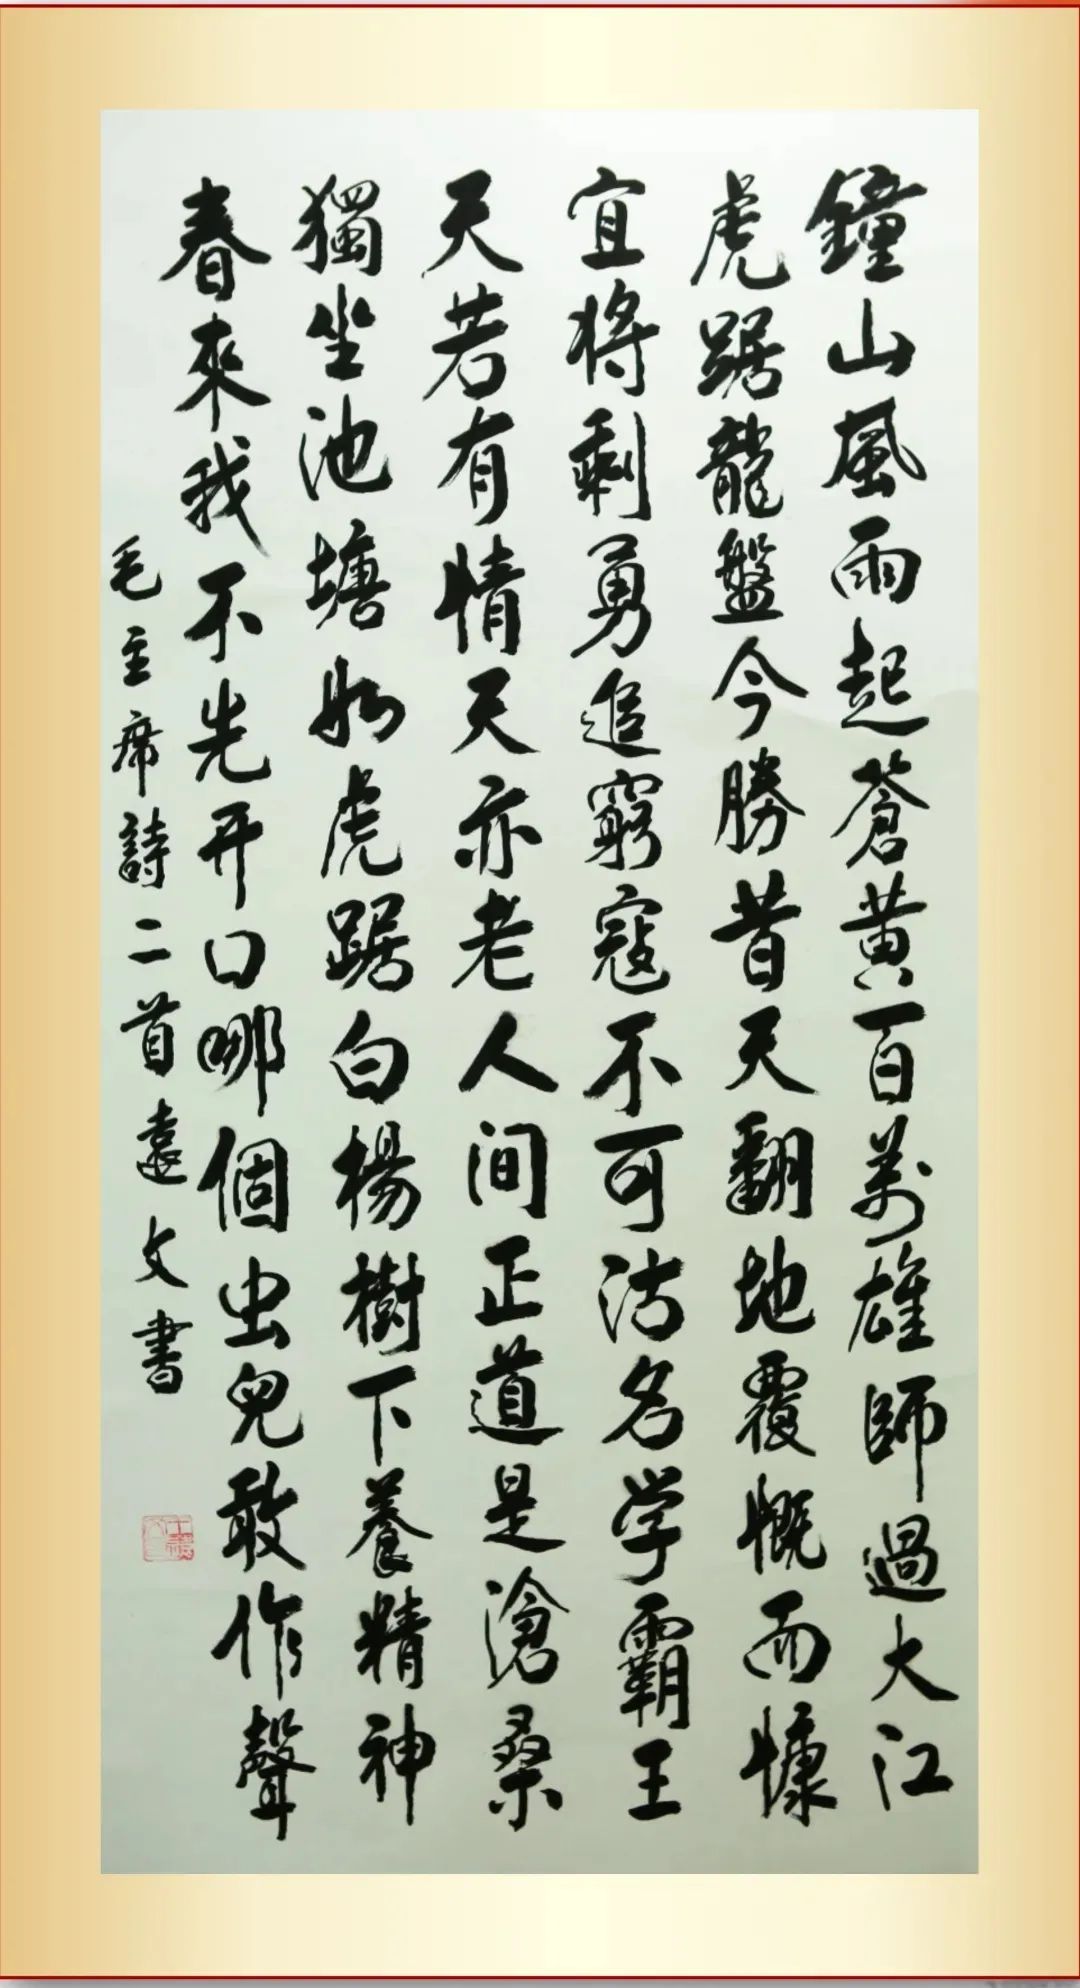 鐘山風雨起蒼黄百萬雄師過大江
虎踞龍盤今勝昔天翻地覆慨而慷
宜将剩勇追窮寇不可沽名学霸王
天若有情天亦老人间正道是滄桑
獨坐池塘如虎踞白楊樹下養精神
春來我不先开口哪個虫兒敢作聲
毛主席詩二首遠文書